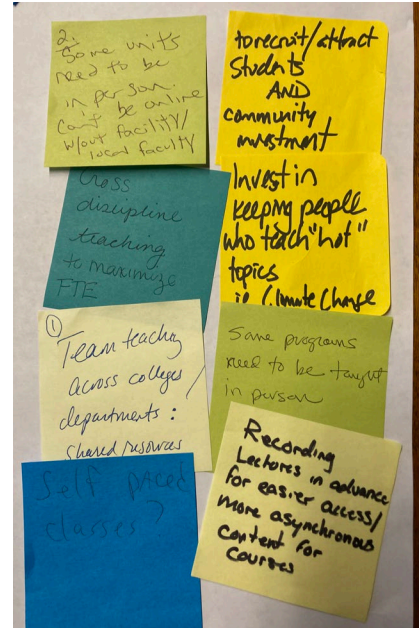 2.
Some units
need to be
in person.
Can't be online
w/out facility/
local faculty
Cross
discipline
teaching
to maximize
FTE
①
Team teaching
across colleges/
departments:
shared resources
Self paced
classes?
to recruit/attract
Students
AND
community
investment
Invest in
keeping people
who teach "hot"
topics
ie Climate Change
Some programs
need to be taught
in person
Recording
Lectures in advance
for easier access/
more asynchronous
content for
courses